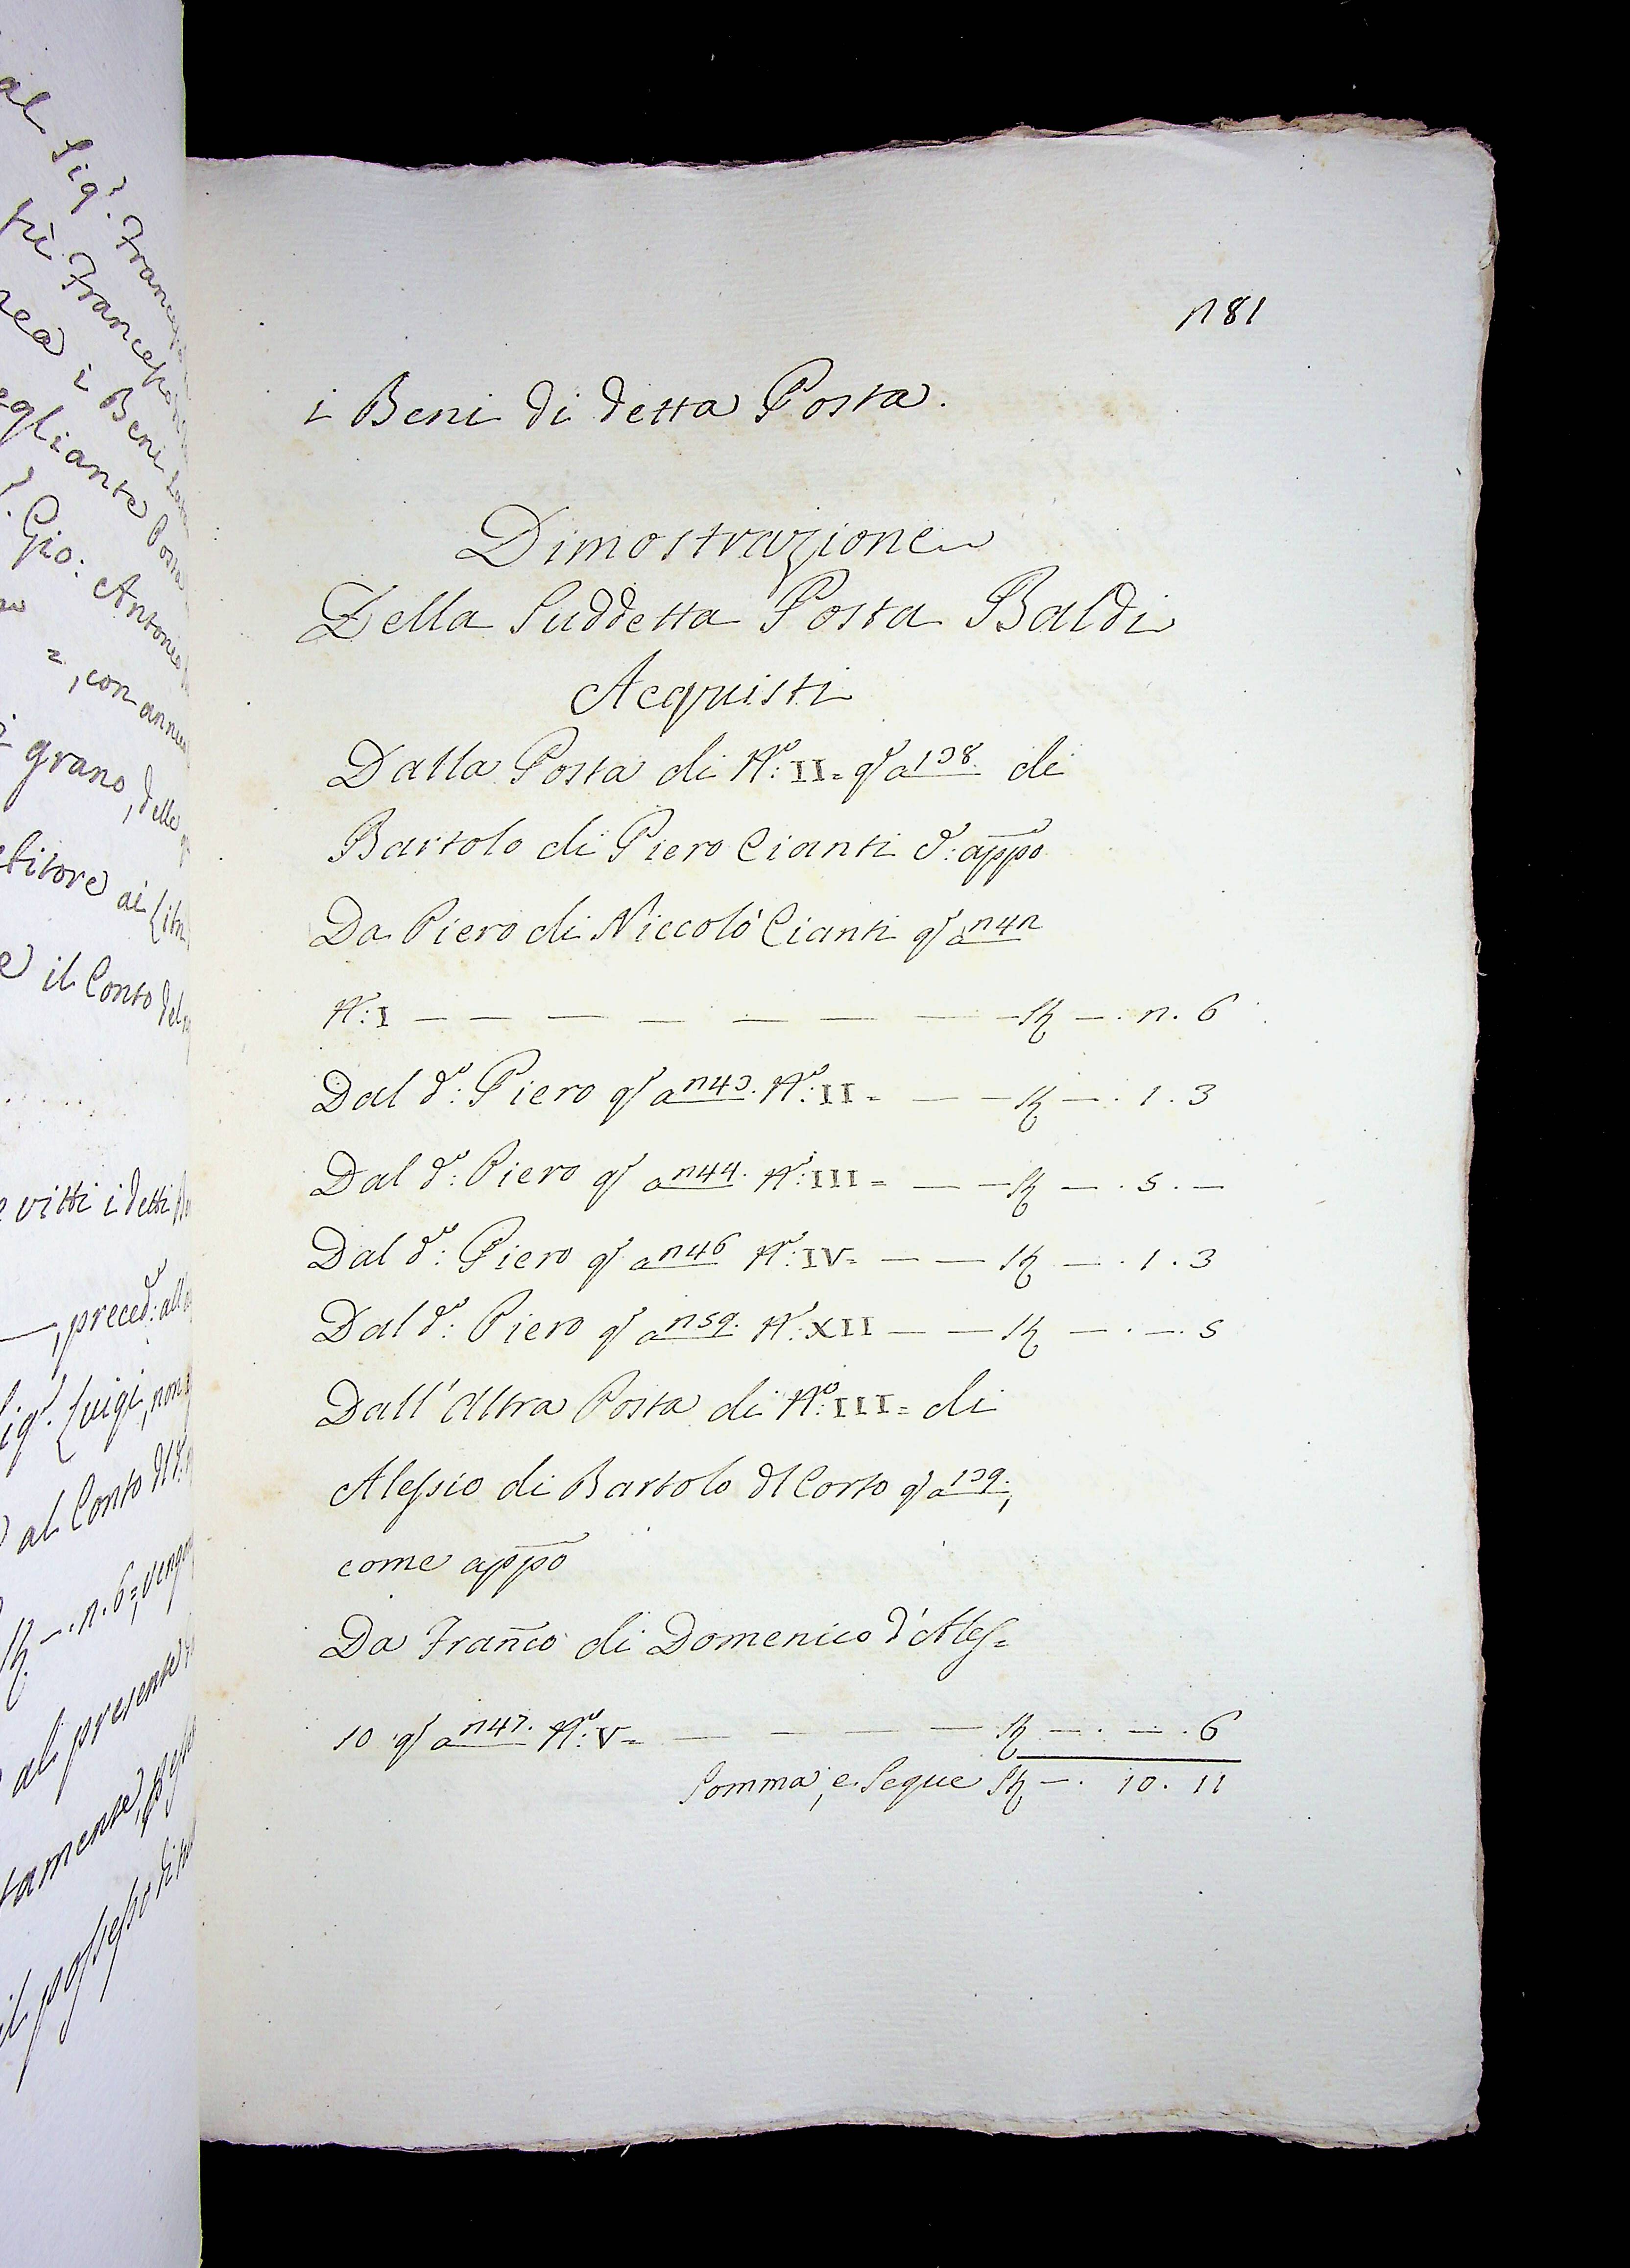 al Sigr. Franceſco
Franceſco
i Beni
Gio: Antonio
=, con annuo
grano, delle
debitore ai
il Conto del
vitti i detti
—, preced: alla
Sigr. Luigi, non
al Conto
—. 2. 6=, vengo
al presente
il poſseſso di
281
i Beni di detta Posta.
Dimostrazione
Della Suddetta Posta Baldi
Acquisti
Dalla Posta di No: II= qſ a 138. di
Bartolo di Piero Cianti do: appo
Da Piero di Niccolò Cianti qſ a 242
No: I — — — — — — — St — . 2. 6
Dal do: Piero qſ a 243. No: II= — — St — . 1. 3
Dal do: Piero qſ a 244. No: III= — — St — . 5. —
Dal do: Piero qſ a 246 No: IV= — — St — . 1. 3
Dal do: Piero qſ a 259. No: XII — — St — . — . 5
Dall'Altra Posta di No: III= di
Aleſsio di Bartolo dl Corso qſ a 139.,
come appo
Da Franco di Domenico d'Aleſ=
io qſ a 247. No: V= — — — — St — . — . 6
Somma, e Segue St — . 10. 11